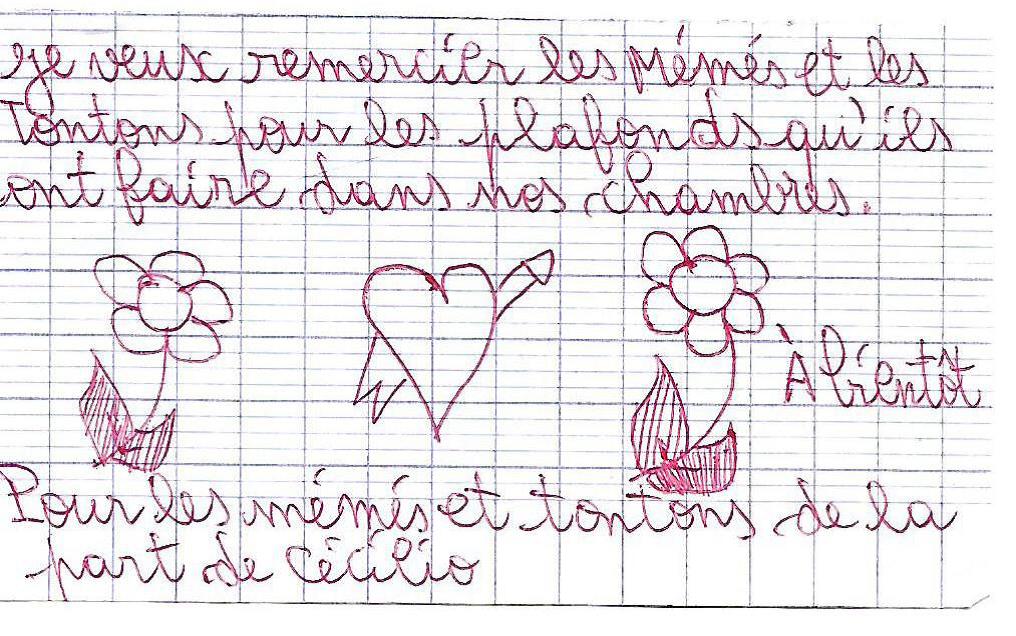 Je veux remercier les Mémés et les
Tontons pour les plafonds qu'ils
ont faire dans nos chambres.
À bientôt
Pour les mémés et tontons de la
part de Cécilio